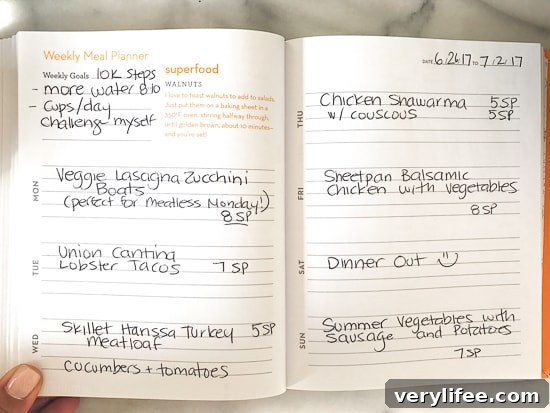 Weekly Meal Planner
Weekly Goals 10K Steps
- more water 8-10
- cups/day
challenge myself
superfood
WALNUTS
I love to toast walnuts to add to salads.
Just put them on a baking sheet in a
350°F oven, stirring halfway through,
until golden brown, about 10 minutes—
and you're set!
MON
Veggie Lasagna Zucchini
Boats
(perfect for meatless Monday!)
8 SP
TUE
Union Cantina
Lobster Tacos 7 SP
WED
Skillet Harissa Turkey 5 SP
meatloaf
cucumbers + tomatoes
DATE 6.26.17 TO 7.2.17
THU
Chicken Shawarma 5 SP
w/ couscous 5 SP
FRI
Sheetpan Balsamic
Chicken with Vegetables
8 SP
SAT
Dinner Out
SUN
Summer Vegetables with
Sausage and Potatoes
7 SP
verylifee.com